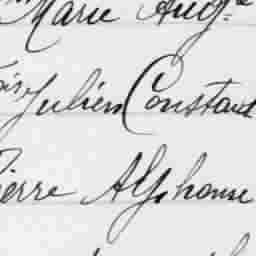 Marie Aug.e
Julien Constant
Pierre Alphonse